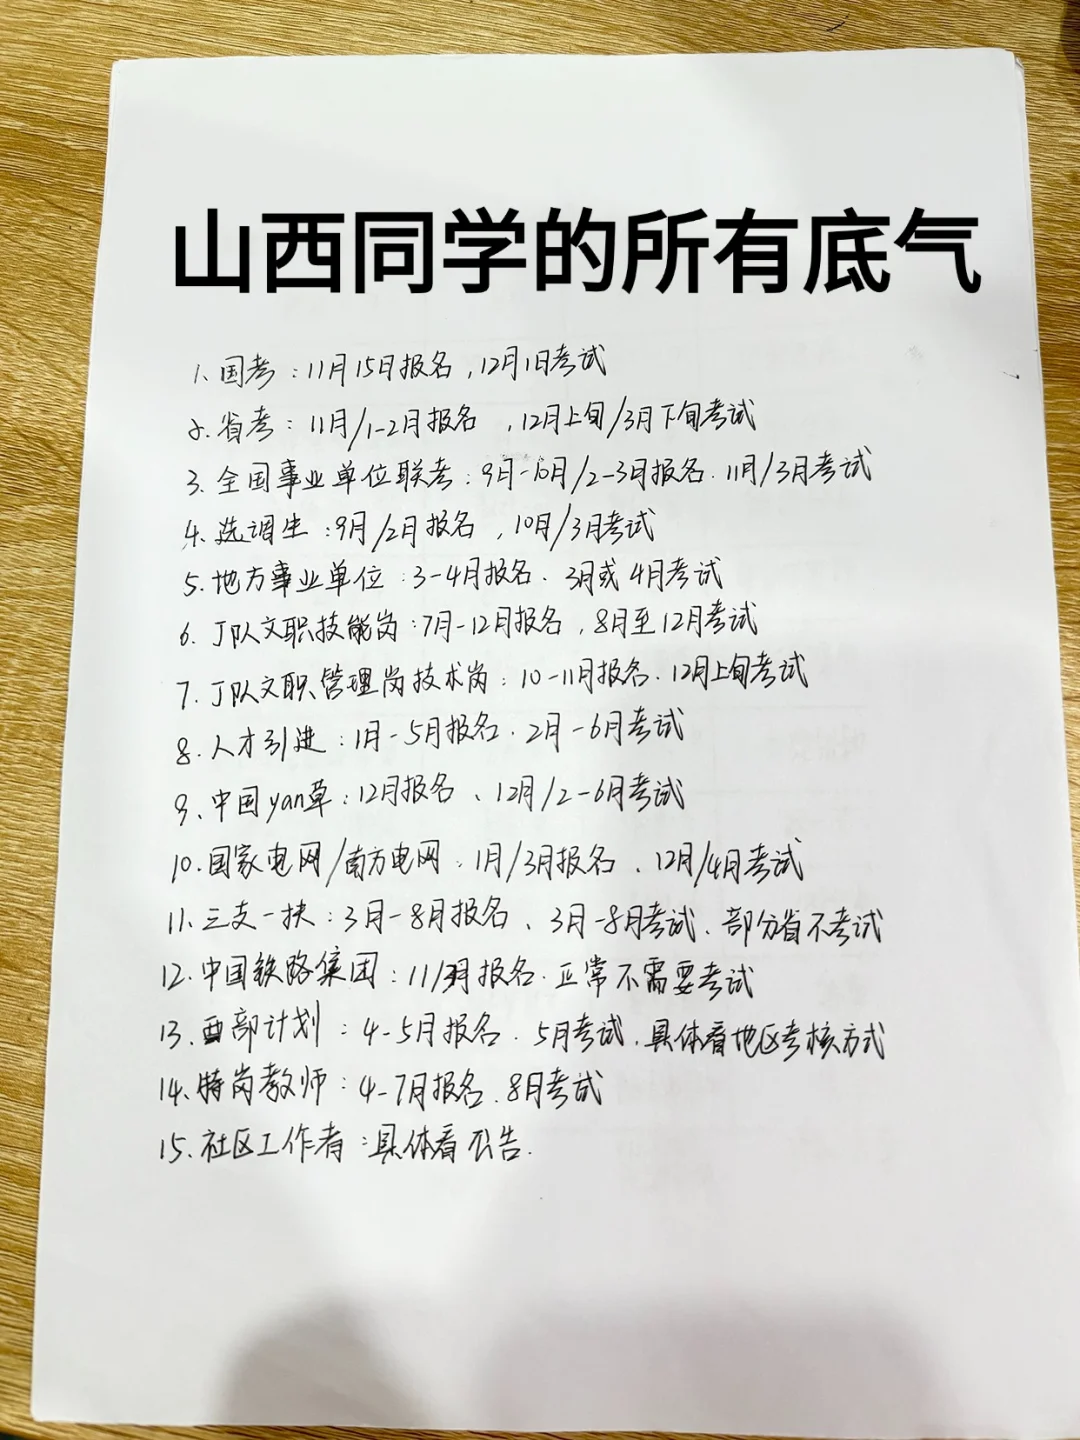 山西同学的所有底气
1、国考：11月15日报名，12月1日考试
2、省考：11月/1-2月报名，12月上旬/3月下旬考试
3、全国事业单位联考：9月-10月/2-3月报名．11月/3月考试
4、选调生：9月/2月报名，10月/3月考试
5、地方事业单位：3-4月报名．3月或4月考试
6、J队文职技能岗：7月-12月报名，8月至12月考试
7、J队文职管理岗技术岗：10-11月报名．12月上旬考试
8、人才引进：1月-5月报名．2月-6月考试
9、中国yan草：12月报名、12月/2-6月考试
10、国家电网/南方电网：1月/3月报名、12月/4月考试
11、三支一扶：3月-8月报名、3月-8月考试、部分省不考试
12、中国铁路集团：11/3月报名．正常不需要考试
13、西部计划：4-5月报名．5月考试．具体看地区考核方式
14、特岗教师：4-7月报名．8月考试
15、社区工作者：具体看公告．